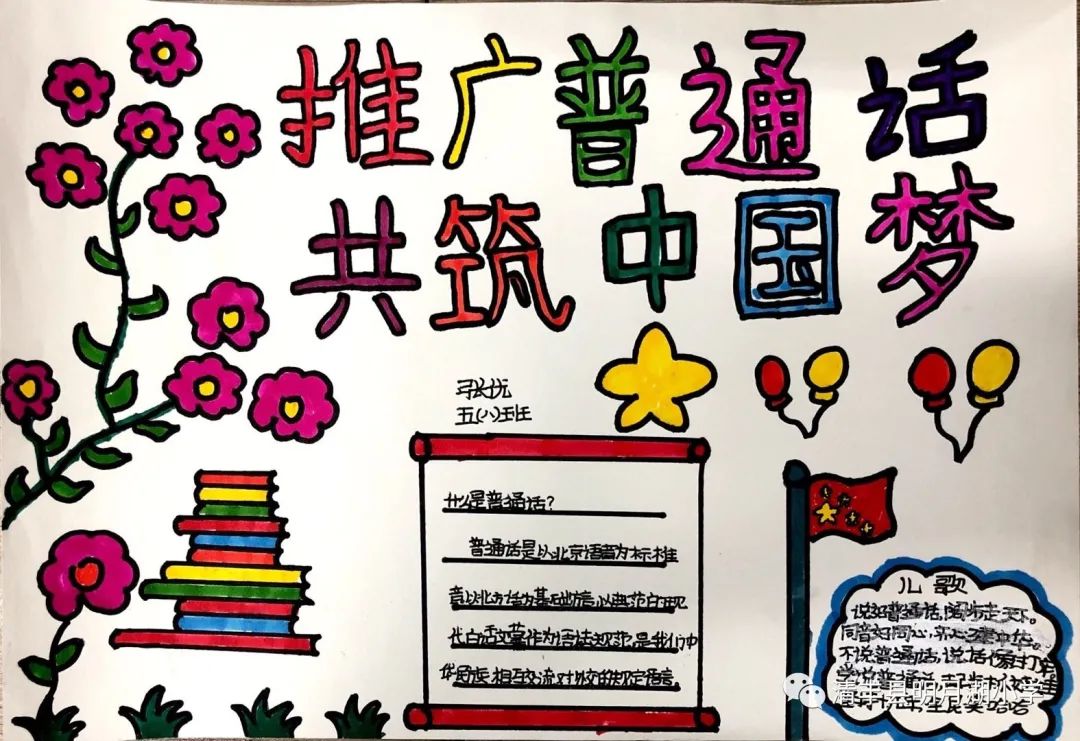 推广普通话
共筑中国梦
张优
五(八)班
什么是普通话？
普通话是以北京语音为标准
音以北方话为基础方言以典范的现
代白话文著作为语法规范,是我们中
华民族相互交流对外交往的规定语言。
儿歌
说好普通话,阔步走天下。
同音好同心,齐心建中华。
不说普通话,说话像打
学说普通话
笑哈哈
清丰县明月湖小学